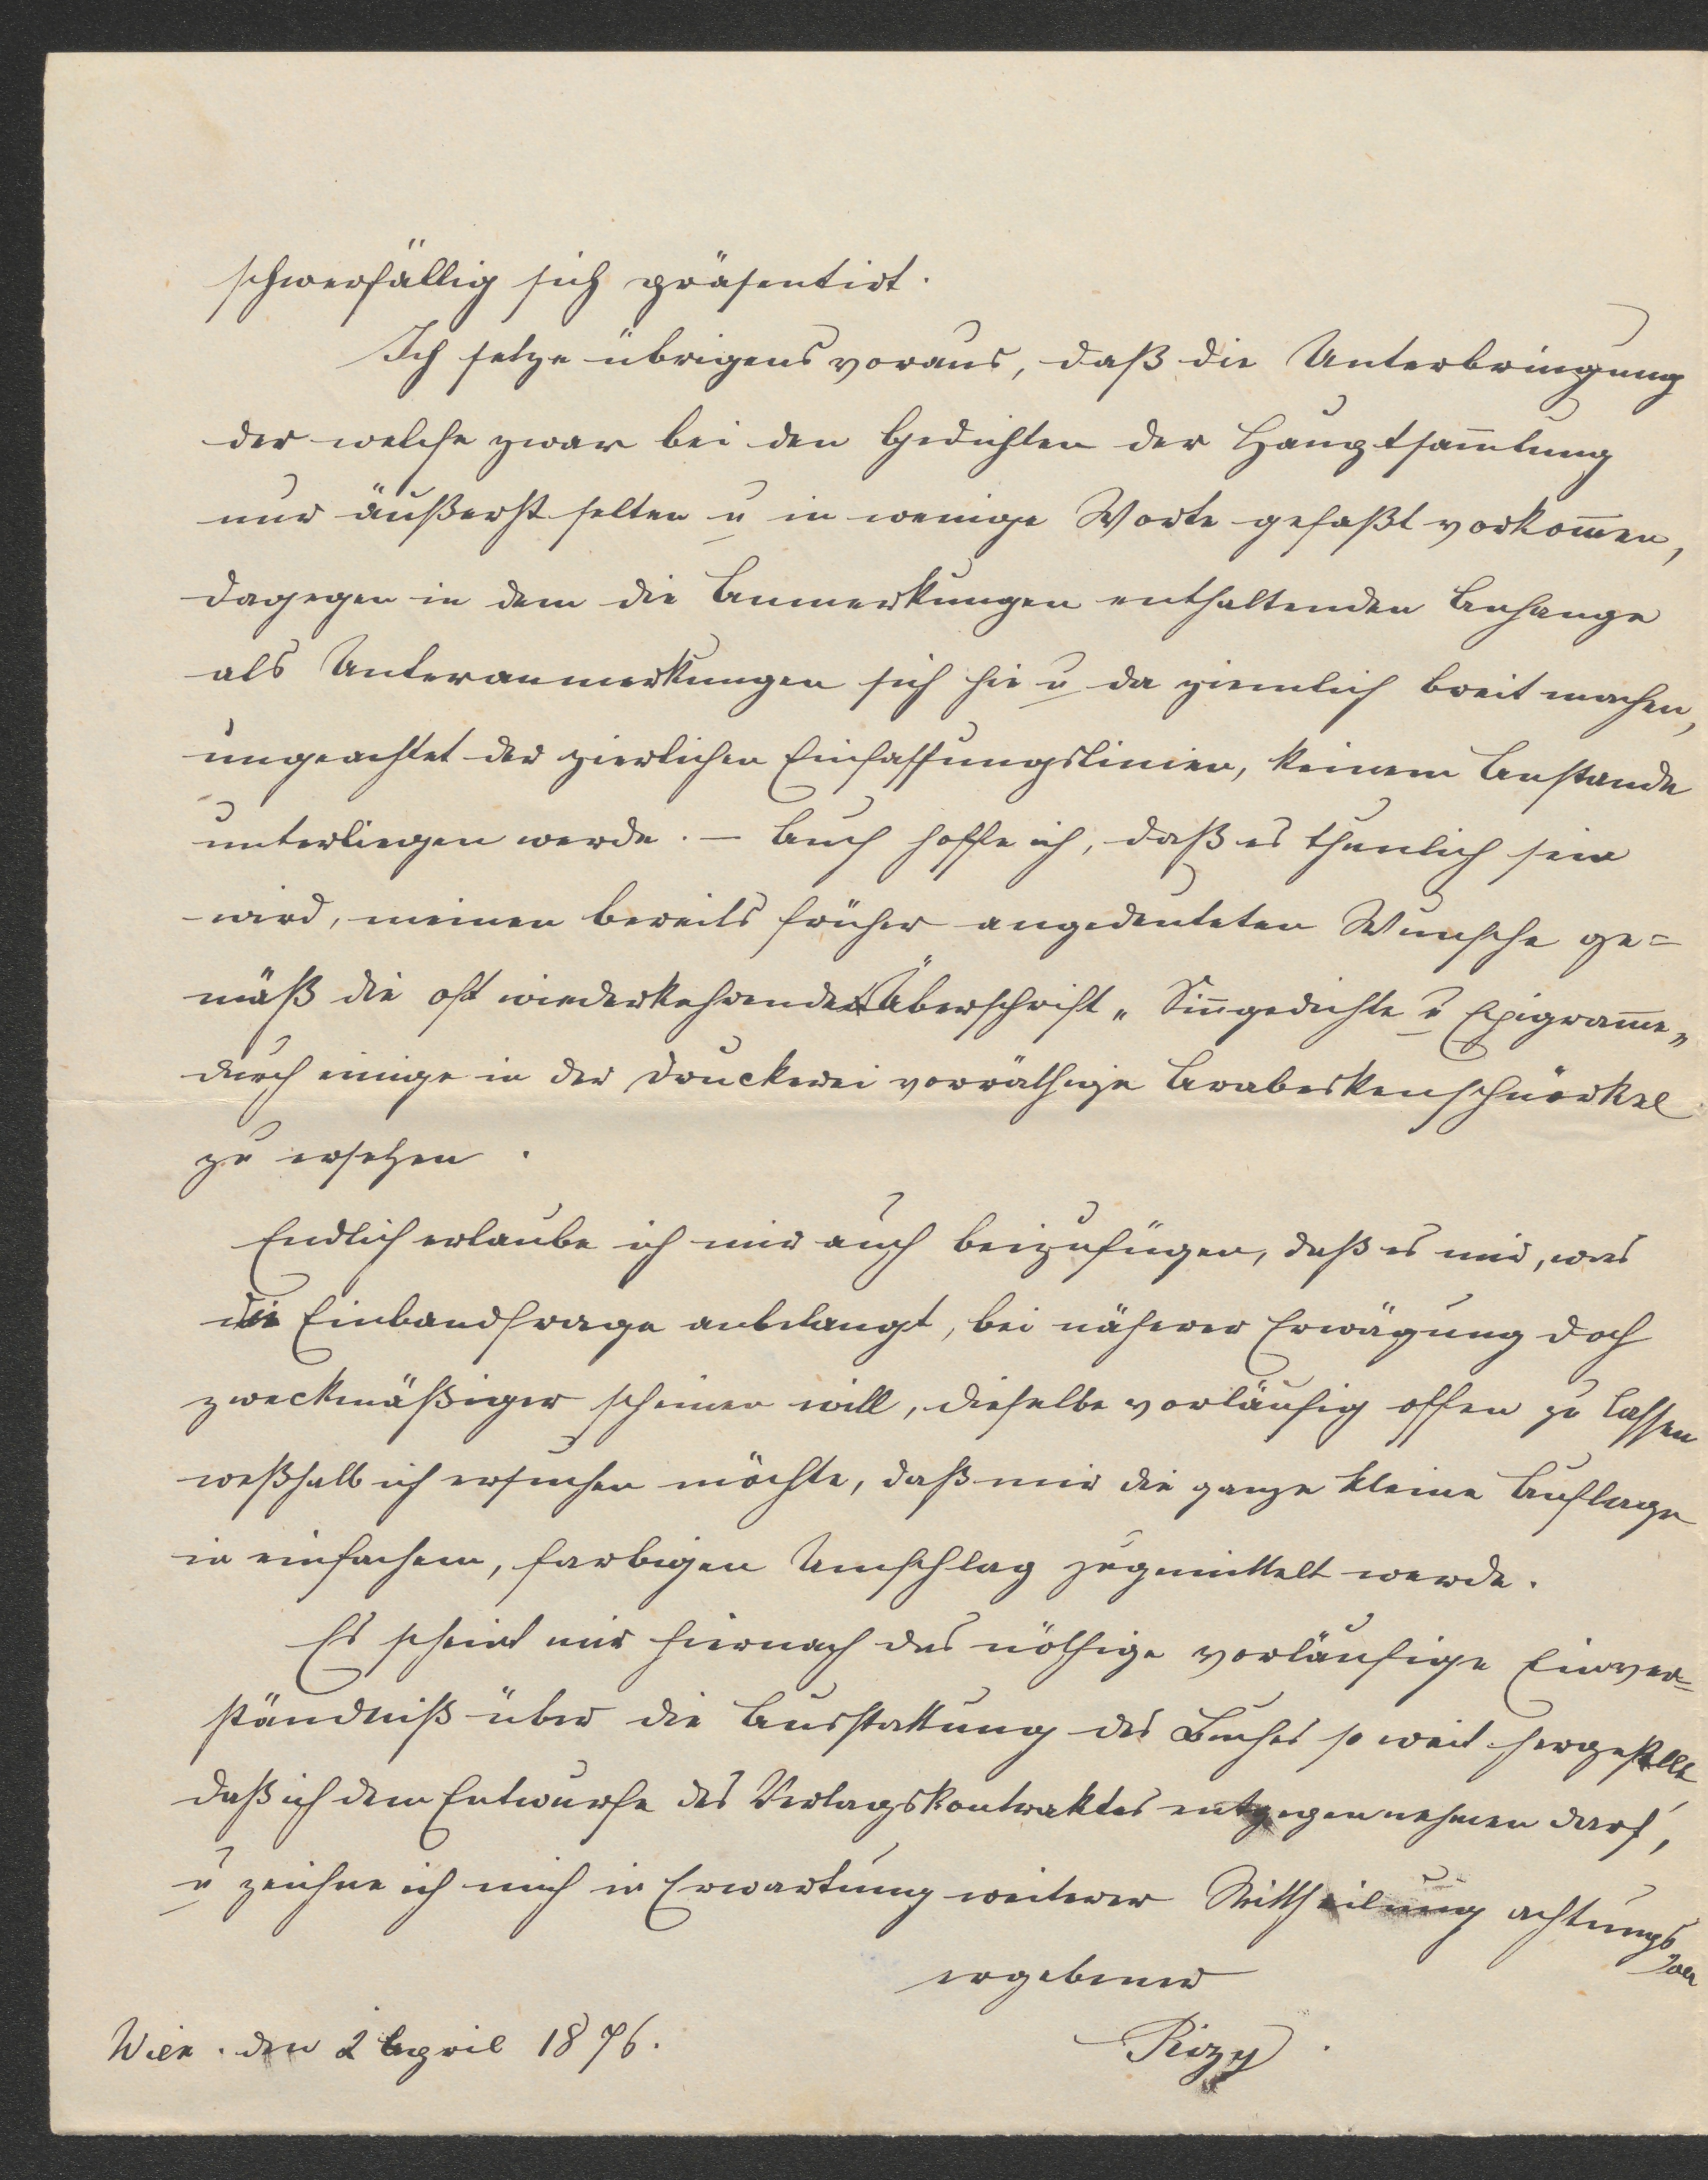 schwerfällig sich präsentirt.
Ich setze übrigens voraus, daß die Unterbringung
der welche zwar bei den Gedichten der Hauptsam̄lung
nur äußerst selten u in wenige Worte gefaßt vorkom̄en,
dagegen in dem die Anmerkungen enthaltenden Anhange
als Unteranmerkungen sich hie u da ziemlich breit machen,
ungeachtet der zierlichen Einfassungslinien, keinem Anstande
unterliegen werde. – Auch hoffe ich, daß es thunlich sein
wird, meinen bereits früher angedeuteten Wunsche ge=
mäß die oft wiederkehrende Überschrift „Sin̄gedichte u Epigram̄e„
durch einige in der Druckerei vorräthige Arabeskenschnörkel
zu ersetzen.
Endlich erlaube ich mir auch beizufügen, daß es mir, was
die Einbandfrage anbelangt, bei näherer Erwägung doch
zweckmäßiger scheinen will, dieselbe vorläufig offen zu lassen
weßhalb ich ersuchen möchte, daß mir die ganze kleine Auflage
in einfachem, farbigen Umschlag zugemittelt werde.
Es scheint mir hiernach das nöthige vorläufige Einver=
ständniß über die Ausstattung des Buches so weit hergestellt,
daß ich dem Entwurfe des Verlagskontraktes entgegennehmen darf,
u zeichne ich mich in Erwartung weiterer Mittheilung achtungsvoll
ergebener
Rizy.
Wien. den 2 April 1876.